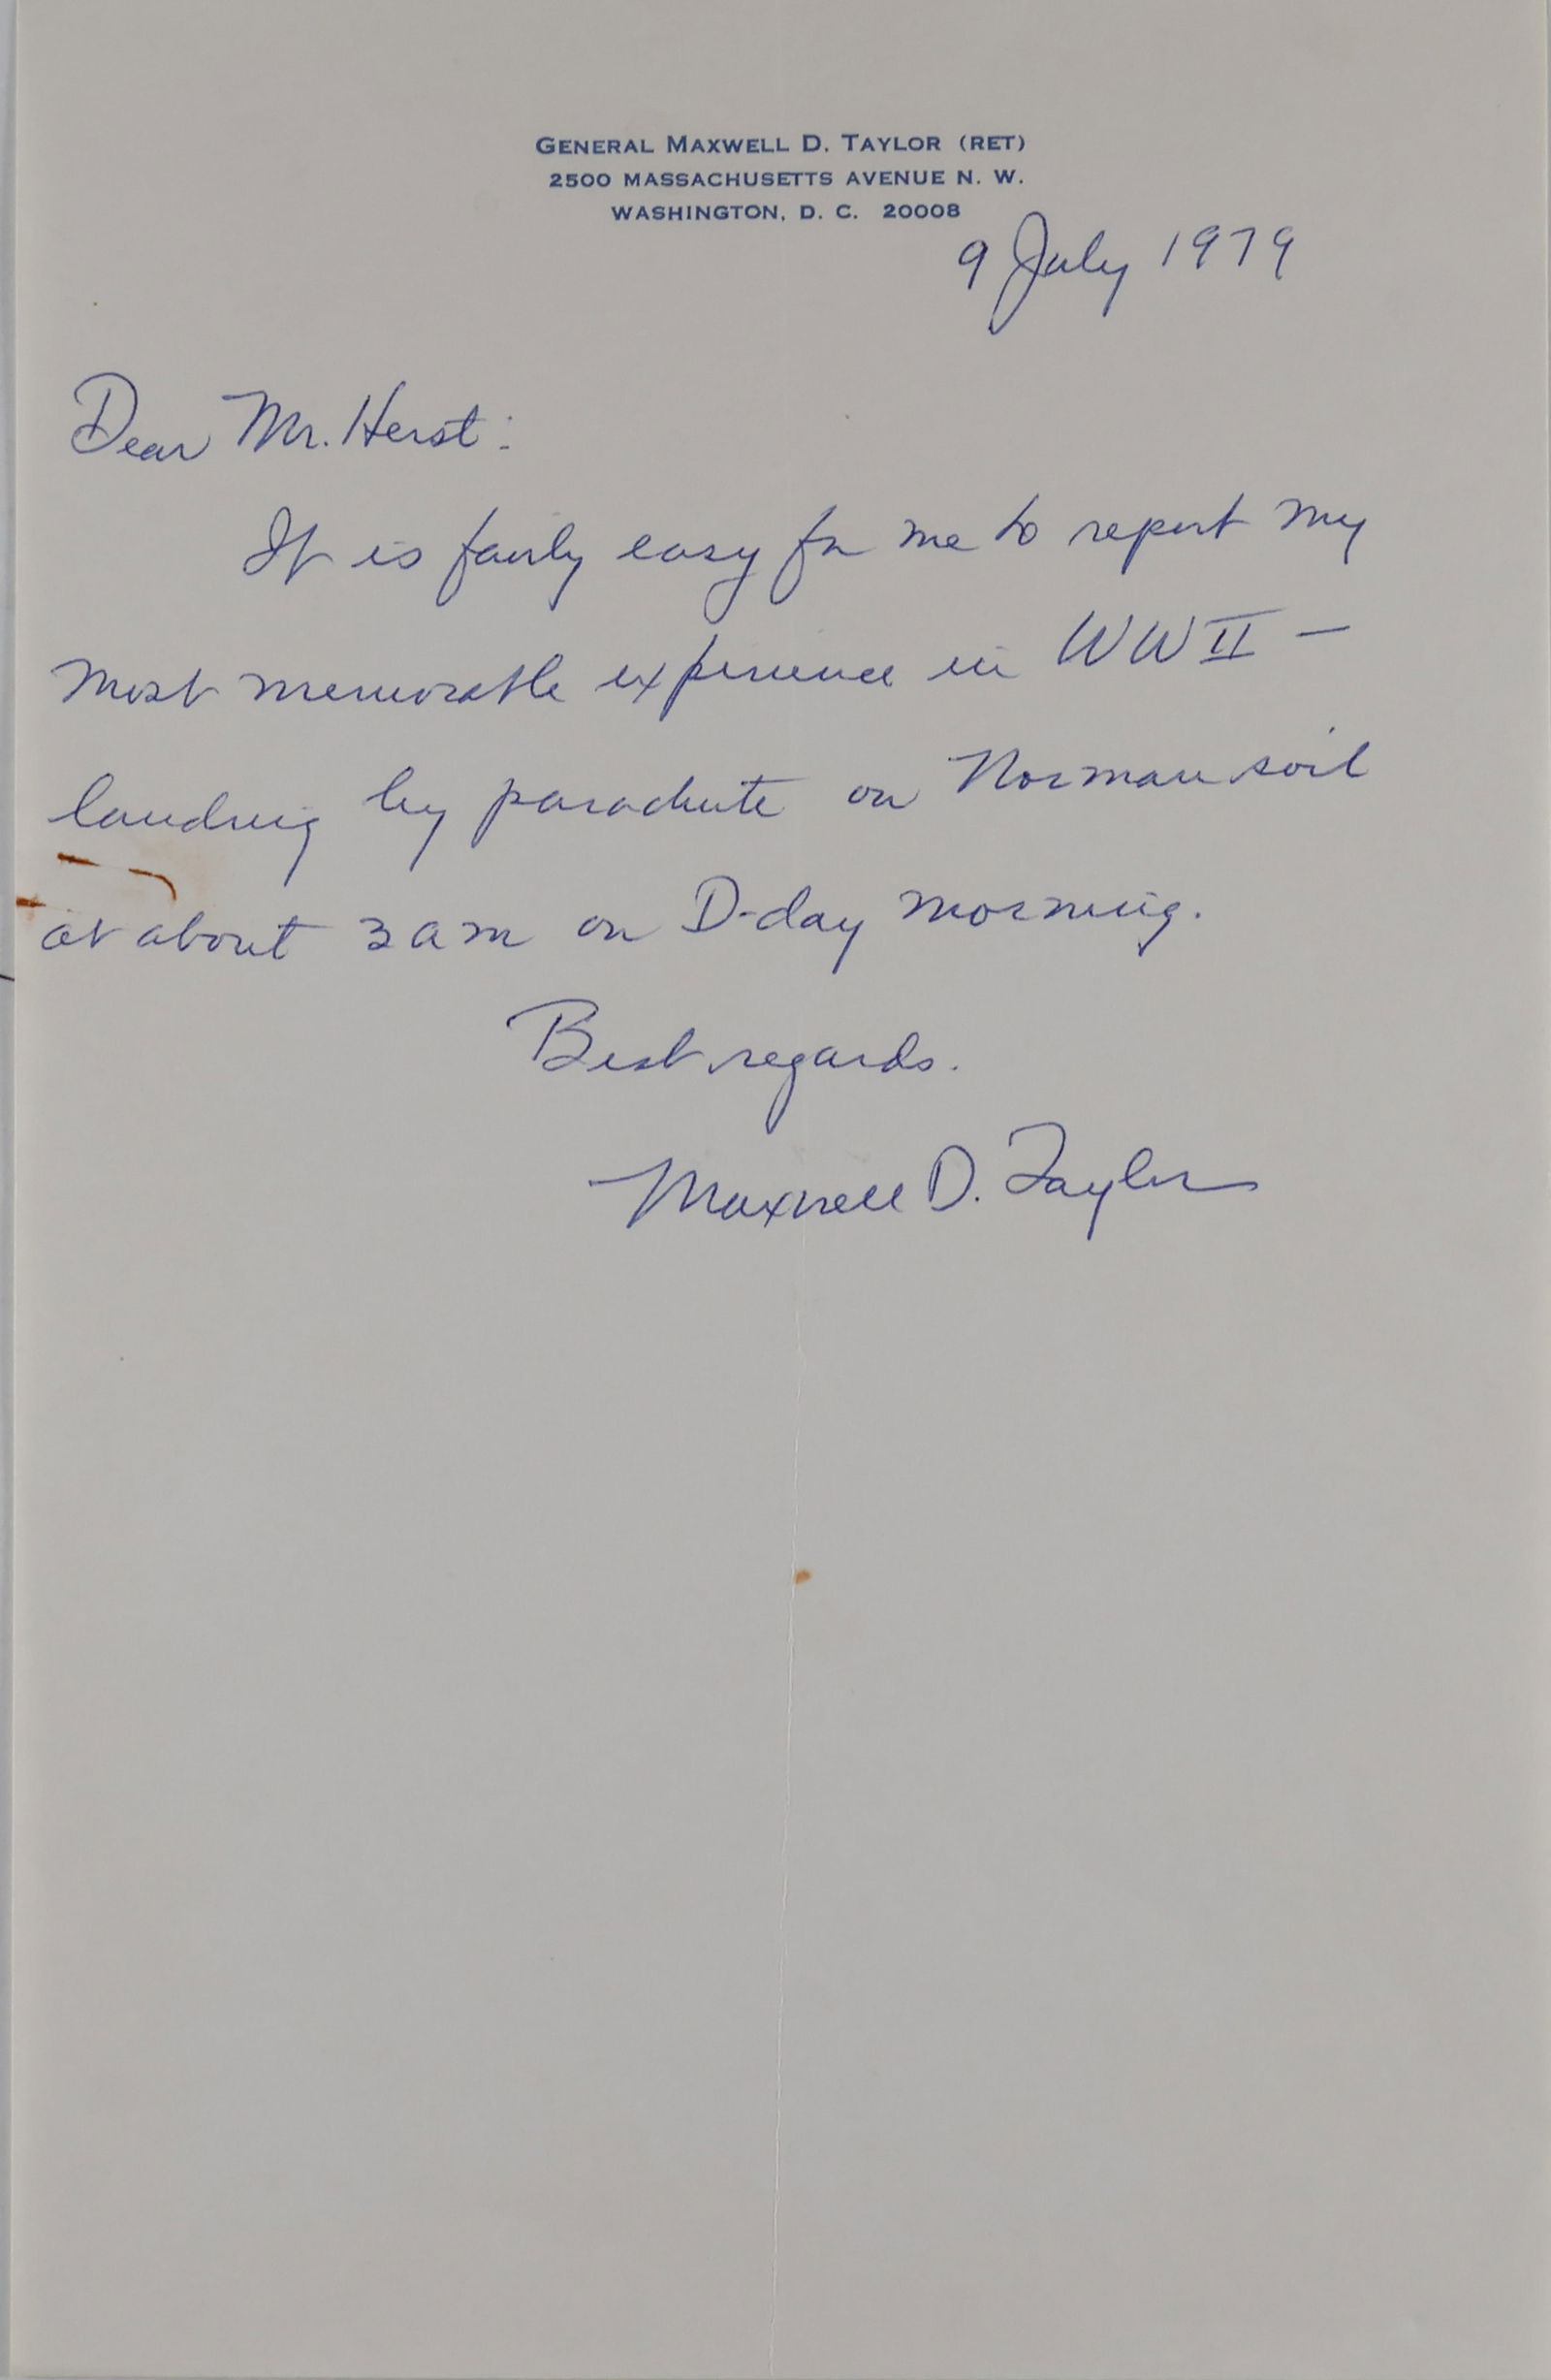 GENERAL MAXWELL D. TAYLOR (RET)
2500 MASSACHUSETTS AVENUE N. W.
WASHINGTON, D. C. 20008
9 July 1979
Dear Mr. Herst:
It is fairly easy for me to report my
most memorable experience in WW II —
landing by parachute on Norman soil
at about 3 am on D-day morning.
Best regards.
Maxwell D. Taylor